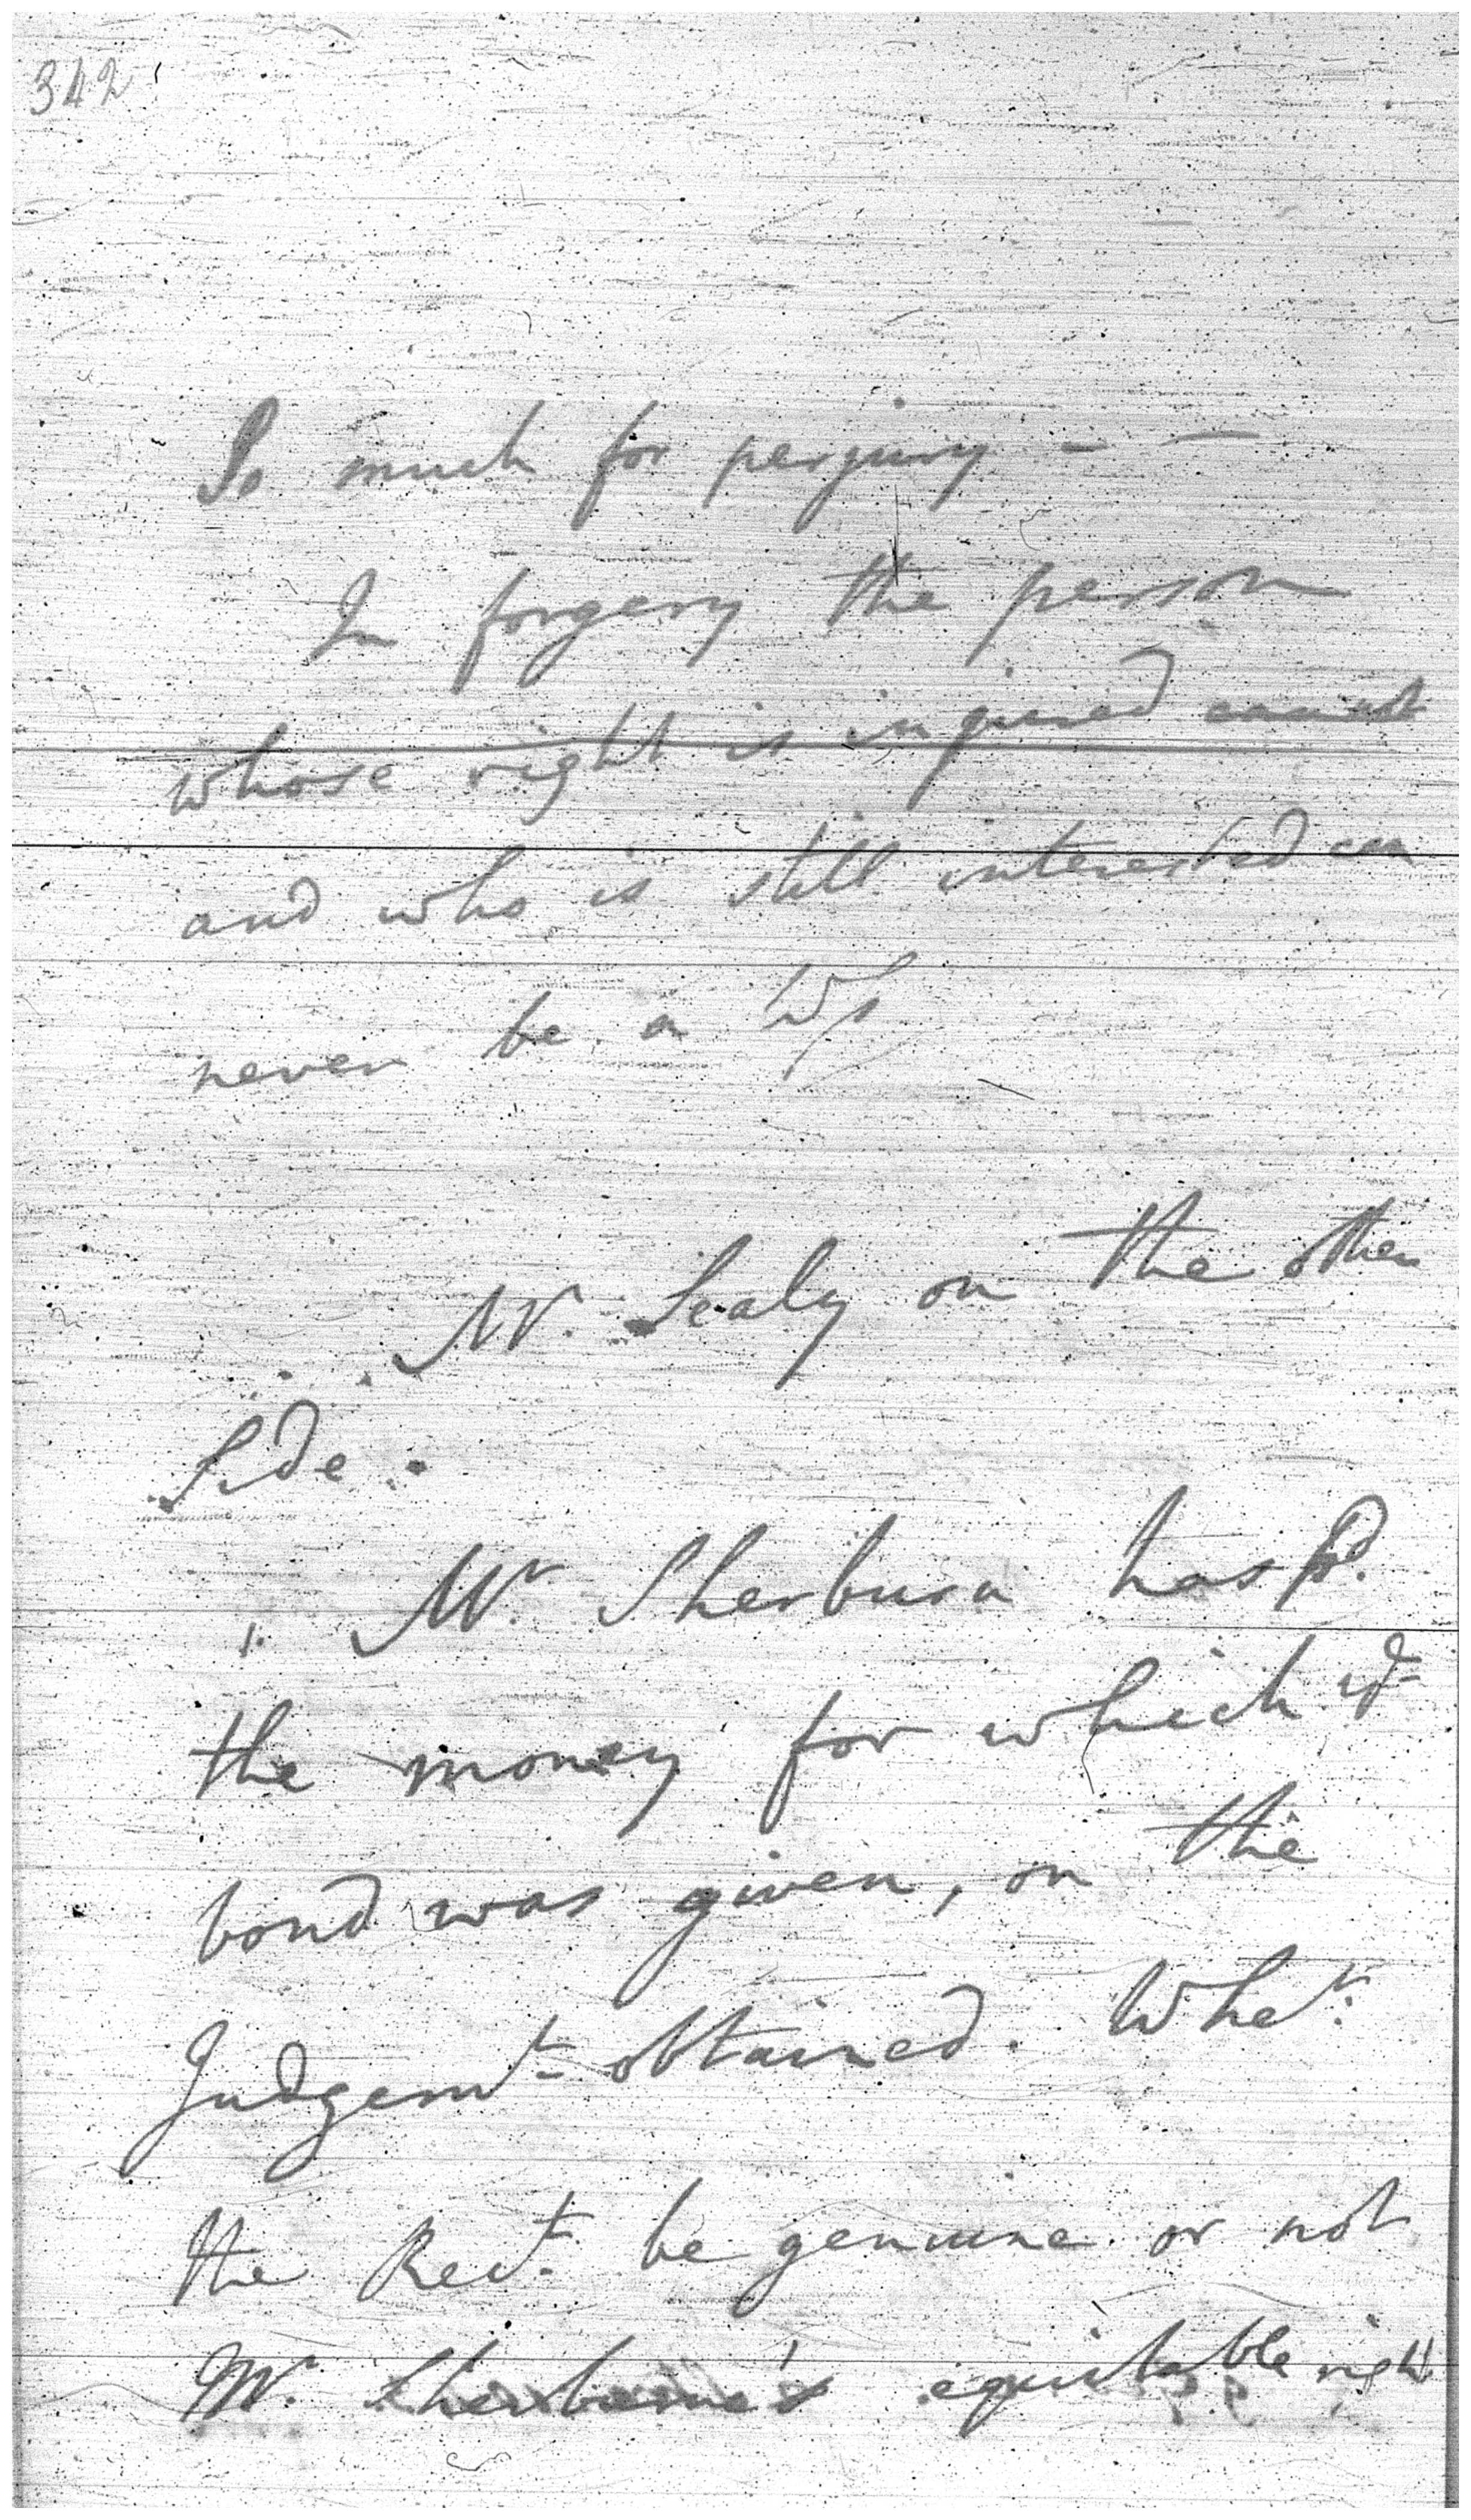 342
So much for perjury - -
In forgery the person
whose right is injured cannot
and who is still interested can
never be a Ws
Mr. Sealy on the other
Side.
Mr. Sherburn has pd.
the money for which ye
bond was given, on the
Judgemt. obtained. Whetr.
the Rect. be genuine or not
Mr. Sherburne's equitable right